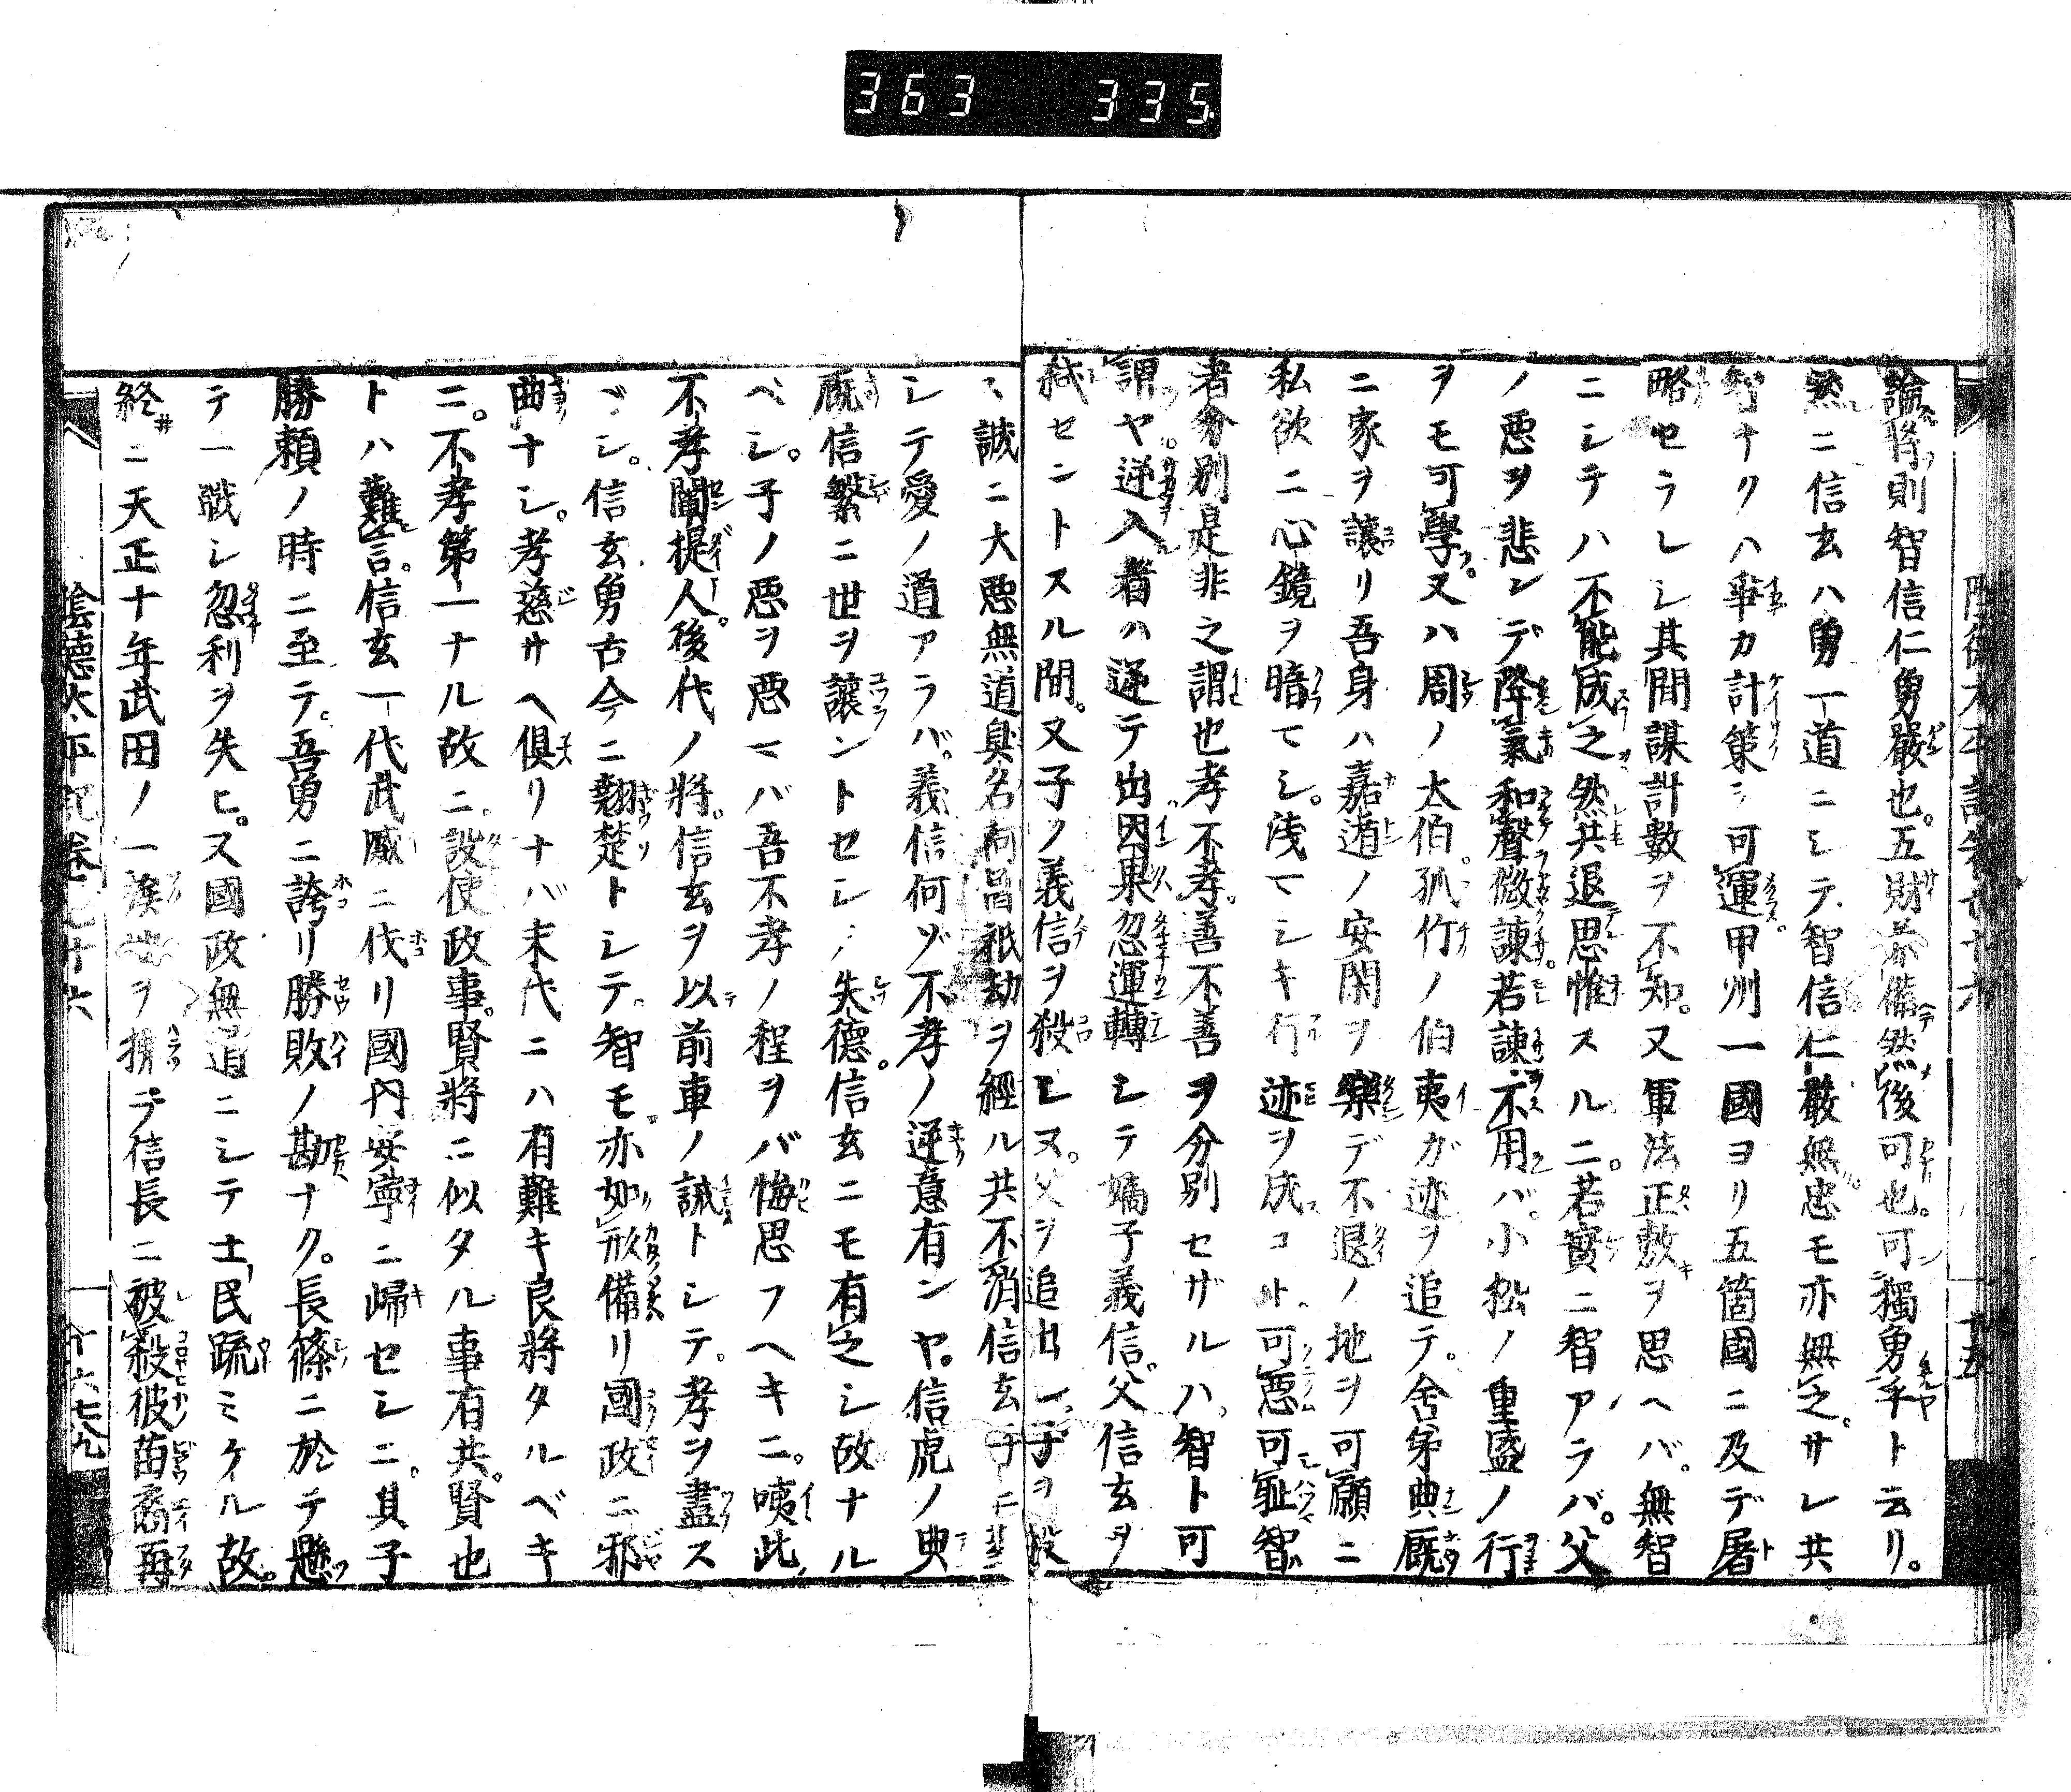 363 335
論将則智信仁勇嚴也。五財亦備然後可也。可獨勇乎ト云リ。
然ニ信玄ハ勇一道ニシテ智信仁嚴無忠モ亦無之。サレ共
智ナクハ爭カ計策ヲ可運。甲州一國ヨリ五箇國ニ及デ屠
略セラレシ其間謀計數ヲ不知。又軍法正敷ヲ思ヘバ。無智
ニシテハ不能成之然共退思惟スルニ。若實ニ智アラバ。父
ノ悪ヲ悲シデ降氣和聲微諫若諫不用バ。小松ノ重盛ノ行
ヲモ可學。又ハ周ノ太伯。孤竹ノ伯夷ガ迹ヲ追テ。舍弟典厩
ニ家ヲ讓リ吾身ハ嘉遁ノ安閑ヲ樂デ不退ノ地ヲ可願ニ
私欲ニ心鏡ヲ暗マシ。浅マシキ行迹ヲ成コト。可悪可耻智
者分別是非之謂也孝不孝。善不善ヲ分別セザルハ。智ト可
謂ヤ逆入者ハ逆テ出因果忽運轉シテ嫡子義信。父信玄ヲ
弑セントスル間。又子ノ義信ヲ殺シヌ。父ヲ追出シ。子ヲ殺
ス誠ニ大悪無道臭名阿僧祇劫ヲ經ル共不消信玄子ニ
シテ愛ノ道アラバ。義信何ゾ不孝ノ逆意有ンヤ。信虎ノ典
厩信繁ニ世ヲ讓ントセシハ失德。信玄ニモ有之シ故ナル
ベシ。子ノ悪ヲ悪マバ吾不孝ノ程ヲバ悔思フヘキニ。咦此
不孝闡提人。後代ノ將。信玄ヲ以前車ノ誡トシテ。孝ヲ盡ス
ベシ。信玄勇古今ニ翹楚トシテ。智モ亦如形備リ國政ニ邪
曲ナシ。孝慈サヘ倶リナバ末代ニハ有難キ良將タルベキ
ニ。不孝第一ナル故ニ。設使政事。賢將ニ似タル事有共。賢也
トハ難言。信玄一代武威ニ伐リ國内安寧ニ歸セシニ。其子
勝頼ノ時ニ至テ。吾勇ニ誇リ勝敗ノ勘ナク。長篠ニ於テ懸
テ一戰シ忽利ヲ失ヒ。又國政無道ニシテ士民疏ミケル故。
終ニ天正十年武田ノ一族地ヲ掃テ信長ニ被殺彼苗裔再
陰德太平記卷之廿六